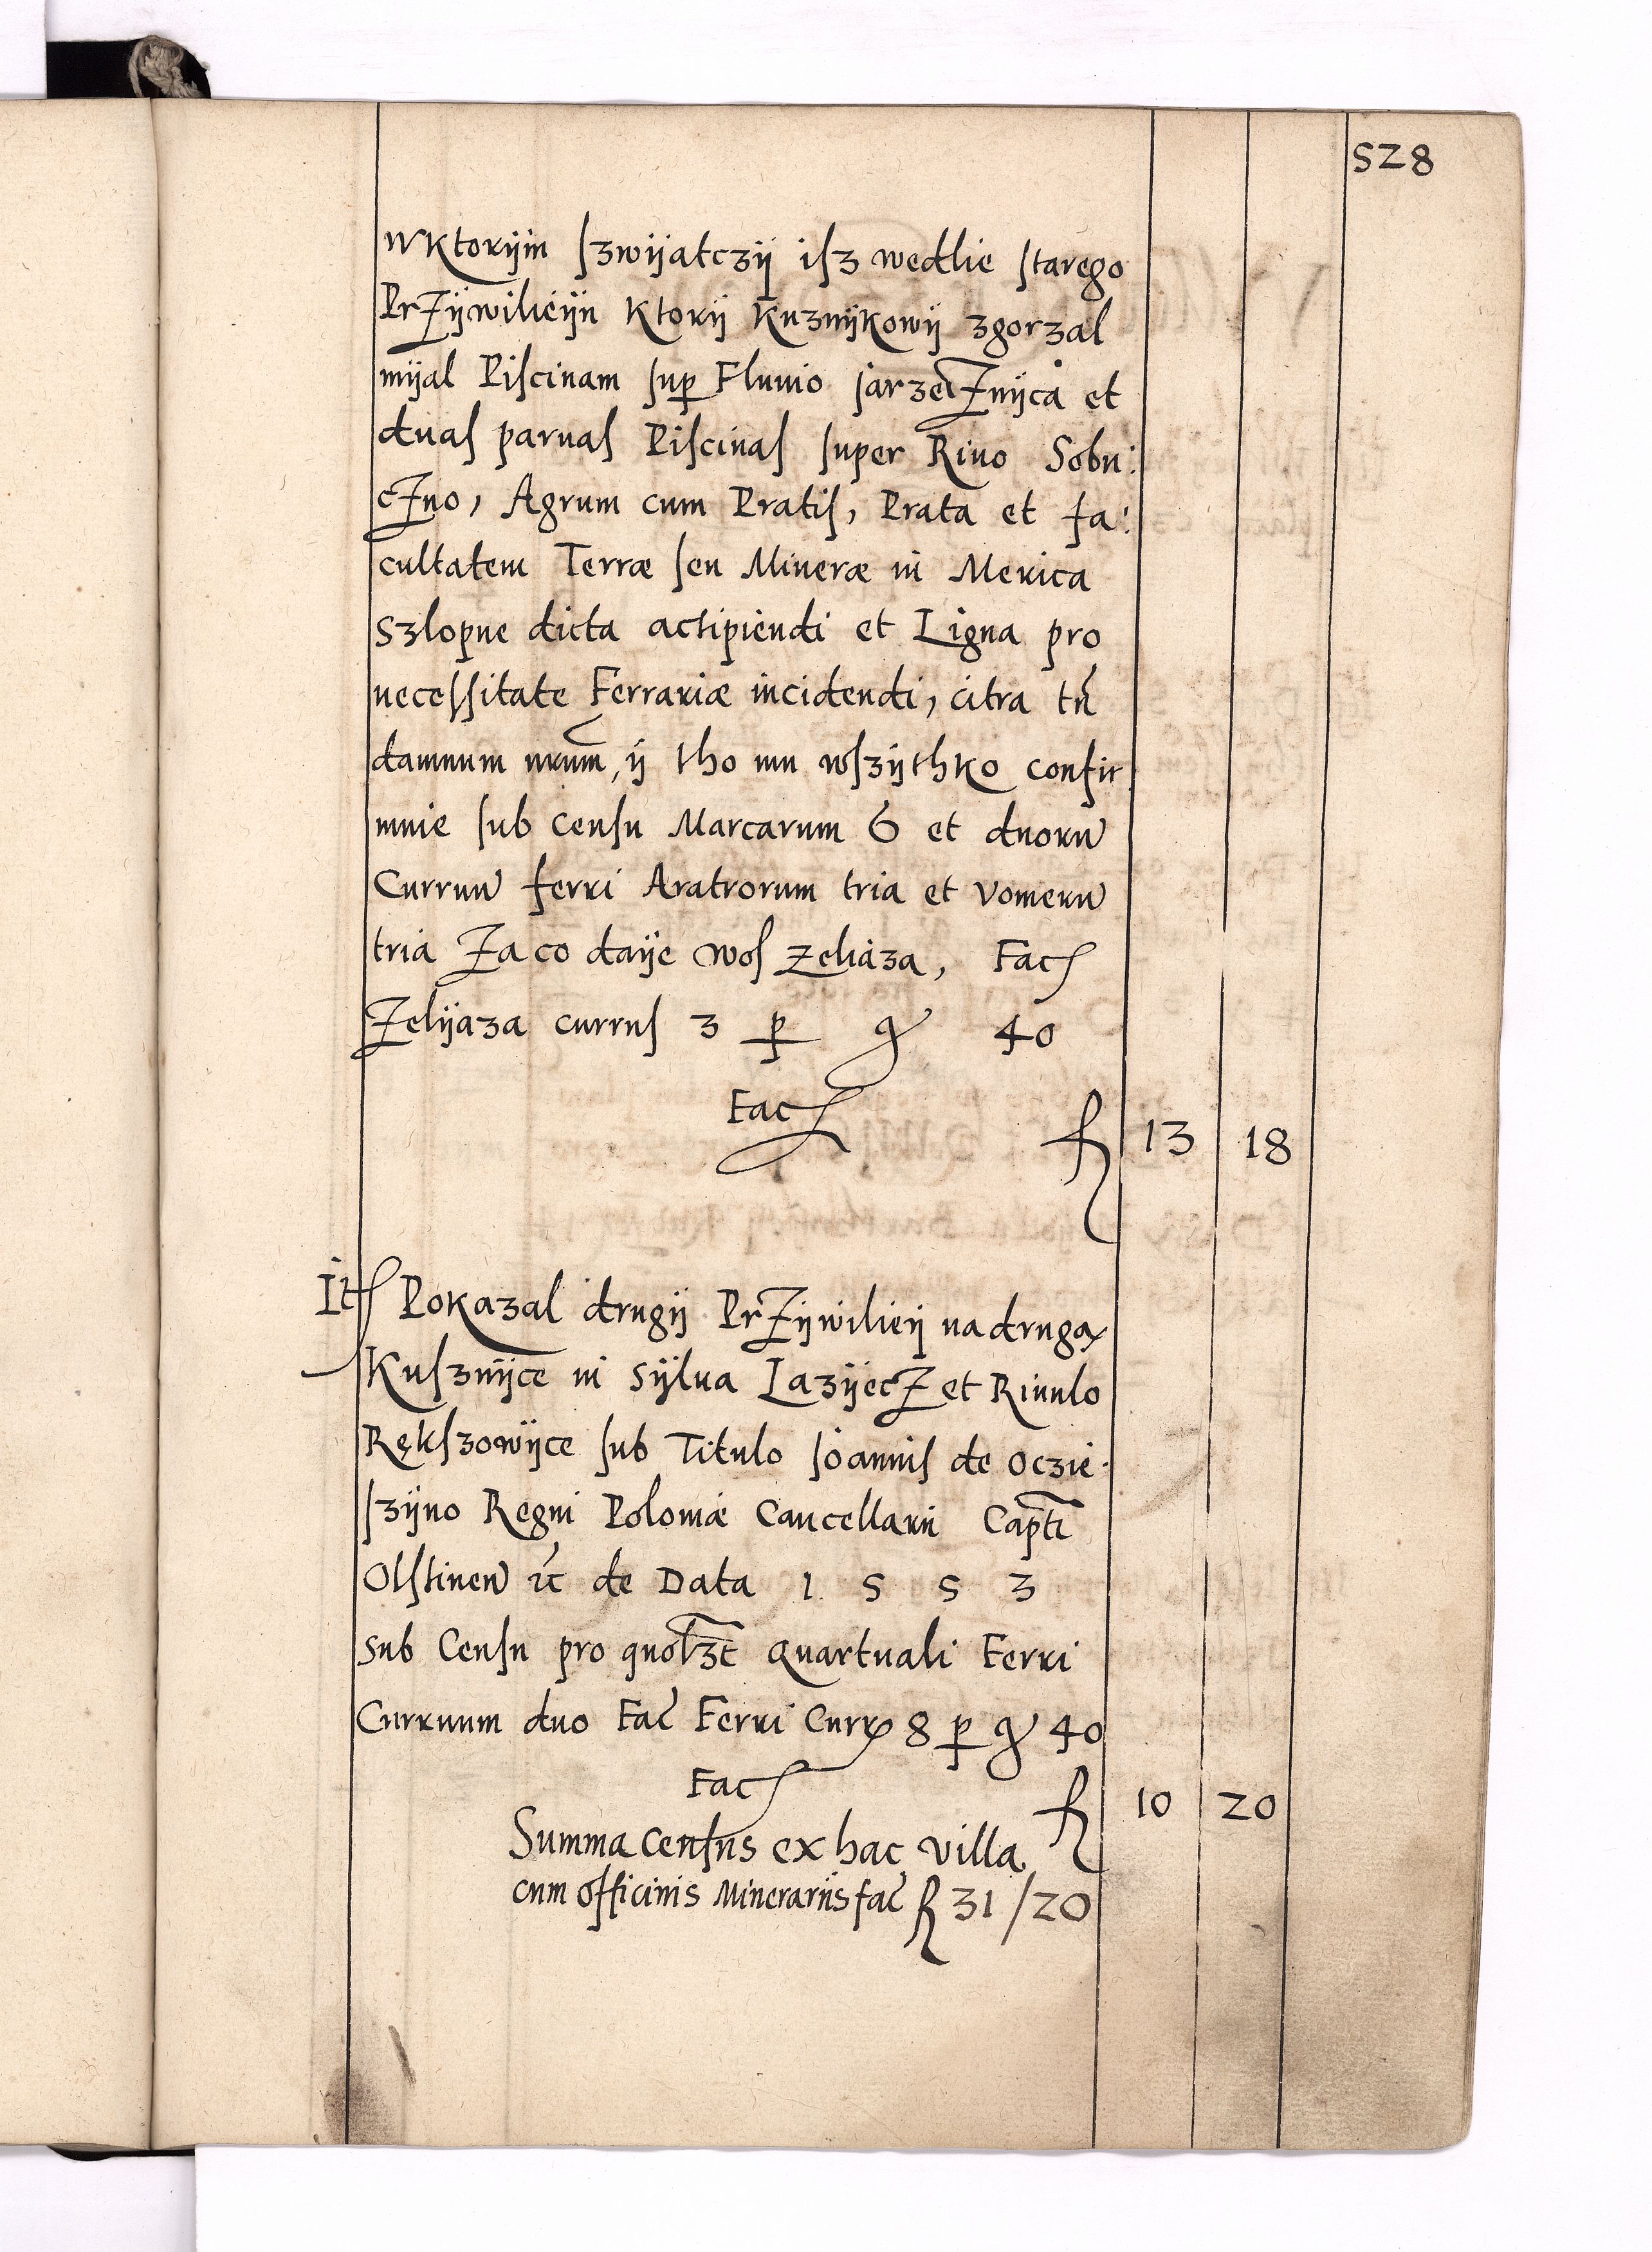 528
wktorijm ſzwijatczij iſz wedlie ſtarego
Przijwilieijn ktorij kuznijkowij zgorzal
mijal Piſcinam ſup Fluuio jarzeclznijca et
duaſ paruaſ Piſcinaſ ſuper Riuo Sobu:
czno, Agrum cum Pratiſ, Prata et fa:
cultatem Terræ ſeu Mineræ in Merica
Szlopne dicta accipiendi et Ligna pro
neceſſitate Ferrariæ incidendi, citra tñ
damnum nrum, ij tho mu wſzijthko confir
muie ſub Cenſu Marcarum 6 et duoru
Curruu ferri Aratrorum tria et vomeru
tria Za co daije woſ zeliaza, Fac
Zelijaza curruſ 3 p gr 40
Fac fl 13 18
It Pokazal drugij Przijwilieij na druga
Kuſznijce in Sÿlua Lazijecz et Riuulo
Rękſzowijce ſub Titulo Joanniſ de Oczie
ſzijno Regni Poloniæ Cancellarii Capti
Olſtinen ẽc de Data 1 5 5 3
Sub Cenſu pro quolzt Quartuali Ferri
Curruum duo Fac Ferri Curr 8 p gr 40
Fac fl 10 20
Summa Cenſus ex hac villa
cum officinis Minerariis fac fl 31/20